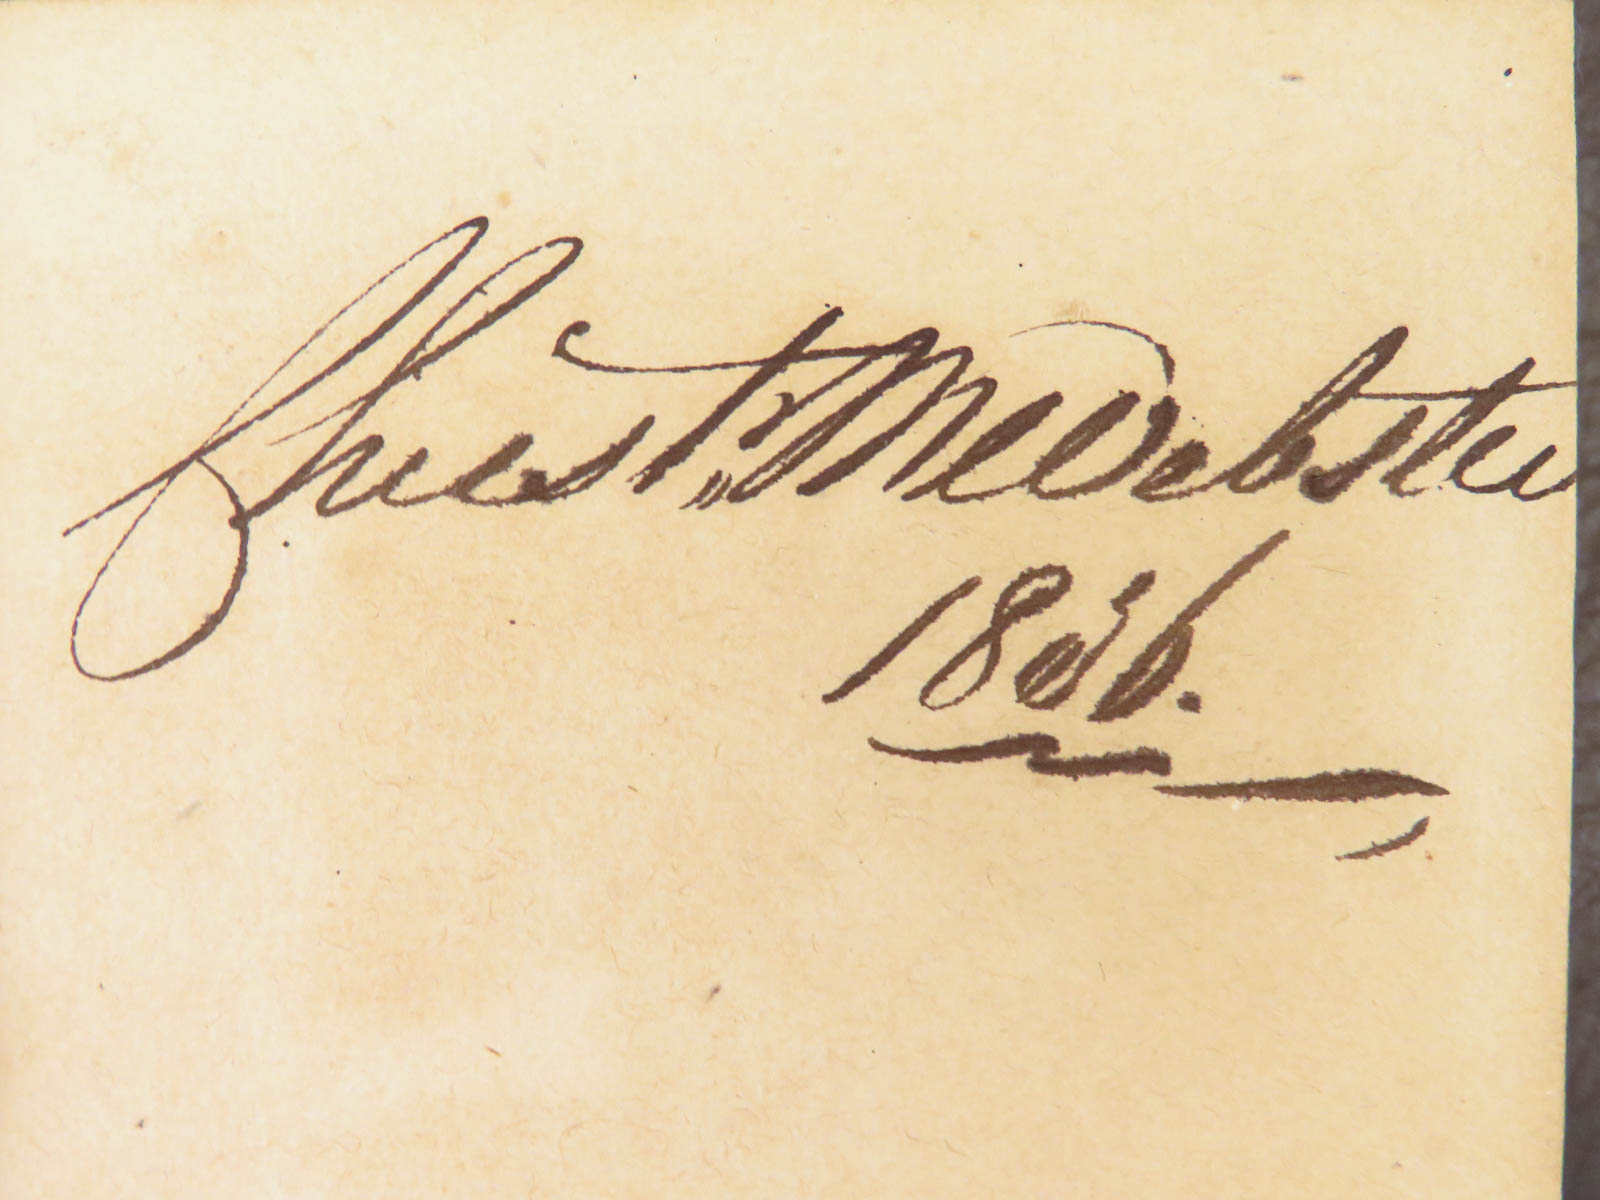 Christ. M. Webster
1836.